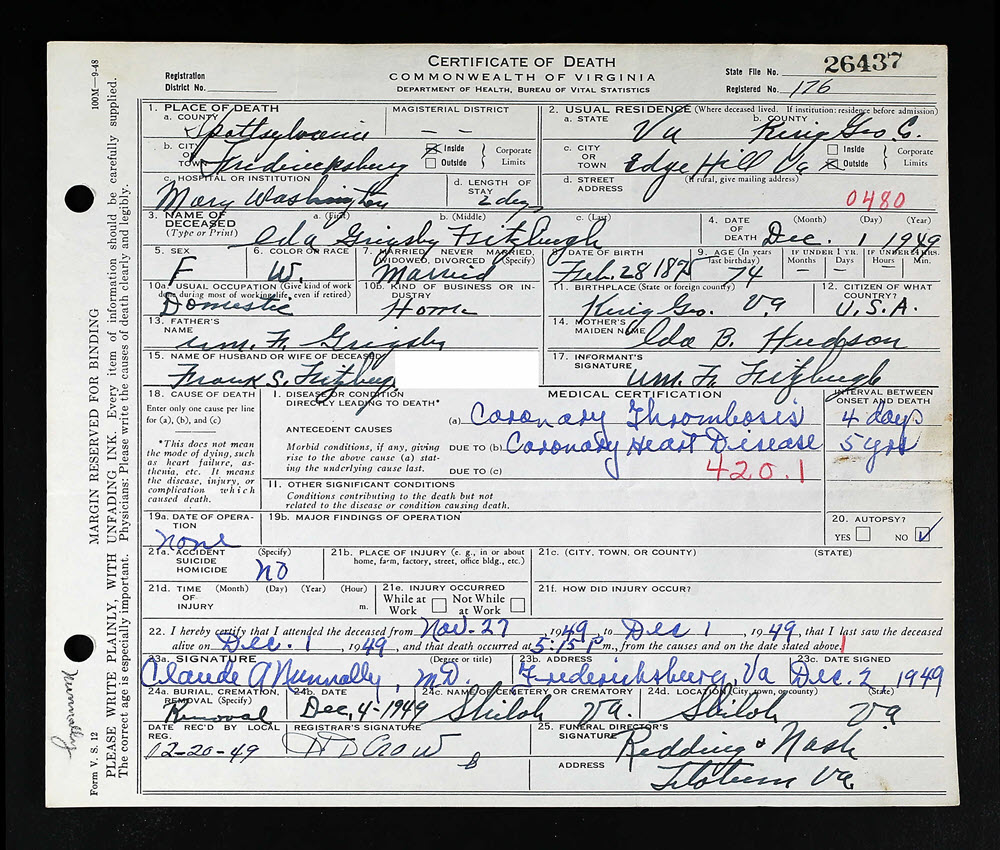 CERTIFICATE OF DEATH
COMMONWEALTH OF VIRGINIA
DEPARTMENT OF HEALTH, BUREAU OF VITAL STATISTICS
Registration District No.
State File No. 26437
Registered No. 176
1. PLACE OF DEATH
a. COUNTY Spottsylvania
MAGISTERIAL DISTRICT – –
b. CITY OR TOWN Fredericksburg
Inside Outside Corporate Limits
c. HOSPITAL OR INSTITUTION Mary Washington
d. LENGTH OF STAY 2 days
2. USUAL RESIDENCE (Where deceased lived. If institution: residence before admission)
a. STATE Va
b. COUNTY King Geo C.
c. CITY OR TOWN Edge Hill Va
Inside Outside Corporate Limits
d. STREET ADDRESS (If rural, give mailing address)
0480
3. NAME OF DECEASED (Type or Print)
a. (First) b. (Middle) c. (Last)
Ida Grigsby Fitzhugh
4. DATE OF DEATH (Month) (Day) (Year)
Dec. 1 1949
5. SEX F
6. COLOR OR RACE W.
7. MARRIED, NEVER MARRIED, WIDOWED, DIVORCED (Specify)
Married
8. DATE OF BIRTH Feb. 28 1875
9. AGE (In years last birthday) 74
IF UNDER 1 YR. Months Days
IF UNDER 24 HRS. Hours Min.
10a. USUAL OCCUPATION (Give kind of work done during most of working life, even if retired)
Domestic
10b. KIND OF BUSINESS OR INDUSTRY
Home
11. BIRTHPLACE (State or foreign country)
King Geo. Va
12. CITIZEN OF WHAT COUNTRY?
U.S.A.
13. FATHER'S NAME Wm. F. Grigsby
14. MOTHER'S MAIDEN NAME Ida B. Hudson
15. NAME OF HUSBAND OR WIFE OF DECEASED
Frank S. Fitzhugh
17. INFORMANT'S SIGNATURE Wm. F. Fitzhugh
18. CAUSE OF DEATH
Enter only one cause per line for (a), (b), and (c)
*This does not mean the mode of dying, such as heart failure, asthenia, etc. It means the disease, injury, or complication which caused death.
MEDICAL CERTIFICATION
INTERVAL BETWEEN ONSET AND DEATH
I. DISEASE OR CONDITION DIRECTLY LEADING TO DEATH*
(a) Coronary Thrombosis 4 days
ANTECEDENT CAUSES
Morbid conditions, if any, giving rise to the above cause (a) stating the underlying cause last.
DUE TO (b) Coronary Heart Disease 5 yrs
DUE TO (c)
420.1
II. OTHER SIGNIFICANT CONDITIONS
Conditions contributing to the death but not related to the disease or condition causing death.
19a. DATE OF OPERATION
none
19b. MAJOR FINDINGS OF OPERATION
20. AUTOPSY?
YES NO
21a. ACCIDENT SUICIDE HOMICIDE (Specify)
NO
21b. PLACE OF INJURY (e. g., in or about home, farm, factory, street, office bldg., etc.)
21c. (CITY, TOWN, OR COUNTY) (STATE)
21d. TIME OF INJURY (Month) (Day) (Year) (Hour) m.
21e. INJURY OCCURRED
While at Work Not While at Work
21f. HOW DID INJURY OCCUR?
22. I hereby certify that I attended the deceased from Nov. 27, 1949, to Dec 1, 1949, that I last saw the deceased
alive on Dec. 1, 1949, and that death occurred at 5:15 P m., from the causes and on the date stated above.
23a. SIGNATURE (Degree or title)
Claude A Nunnally, M.D.
23b. ADDRESS
Fredericksburg, Va
23c. DATE SIGNED
Dec. 2, 1949
24a. BURIAL, CREMATION, REMOVAL (Specify)
Removal
24b. DATE
Dec, 4-1949
24c. NAME OF CEMETERY OR CREMATORY
Shiloh Va.
24d. LOCATION (City, town, or county) (State)
Shiloh Va
DATE REC'D BY LOCAL REG.
12-20-49
REGISTRAR'S SIGNATURE
25. FUNERAL DIRECTOR'S SIGNATURE
Redding & Nash
ADDRESS
Va
100M—9-48
MARGIN RESERVED FOR BINDING
PLEASE WRITE PLAINLY, WITH UNFADING INK. Every item of information should be carefully supplied.
The correct age is especially important. Physicians: Please write the causes of death clearly and legibly.
Form V. S. 12
Nunnally